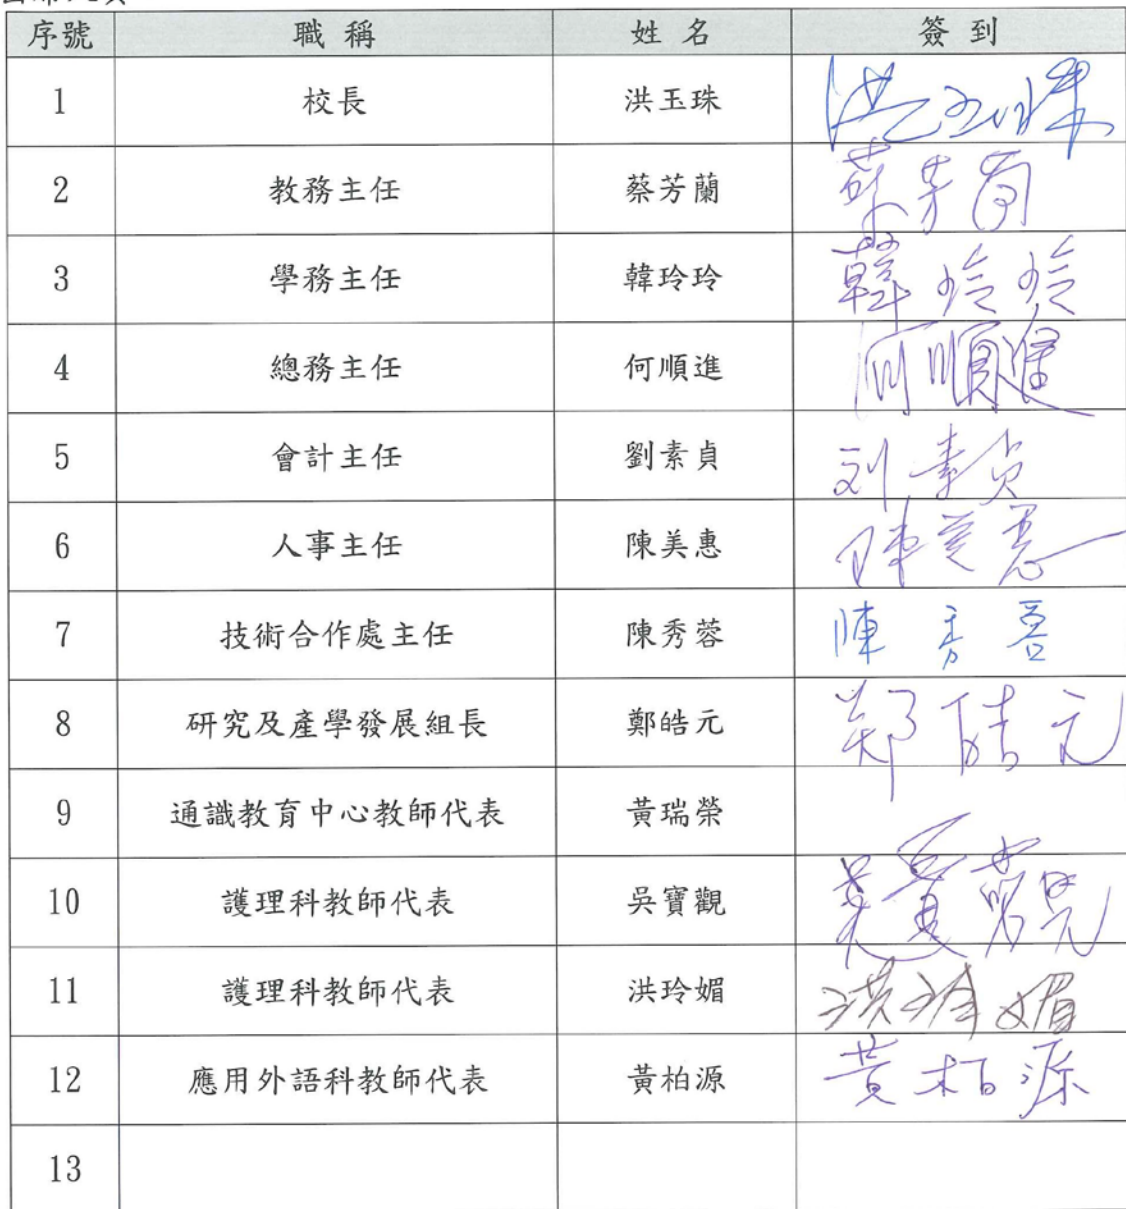 序號 職稱 姓名 簽到
1 校長 洪玉珠 洪玉珠
2 教務主任 蔡芳蘭 蔡芳蘭
3 學務主任 韓玲玲 韓玲玲
4 總務主任 何順進 何順進
5 會計主任 劉素貞 刘素贞
6 人事主任 陳美惠 陳美惠
7 技術合作處主任 陳秀蓉 陳秀蓉
8 研究及產學發展組長 鄭皓元 郑皓元
9 通識教育中心教師代表 黃瑞榮
10 護理科教師代表 吳寶觀 吳寶觀
11 護理科教師代表 洪玲媚 洪玲媚
12 應用外語科教師代表 黃柏源 黃柏源
13